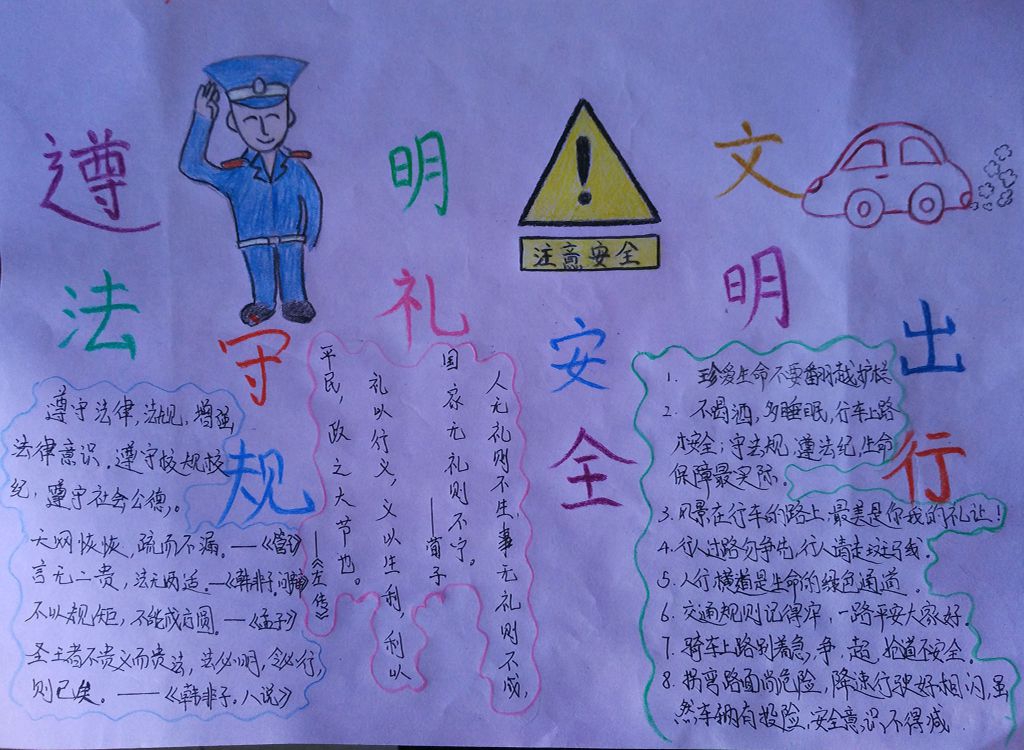 遵法守规
明礼安全
文明出行
注意安全
遵守法律,法规,增强
法律意识。遵守校规校
纪,遵守社会公德。
天网恢恢,疏而不漏。——《管》
言无二贵,法无两适。——《韩非子·问辩》
不以规矩,不能成方圆。——《孟子》
圣王者不贵义而贵法,法必明,令必行,
则已矣。——《韩非子·八说》
人无礼则不生,事无礼则不成,
国家无礼则不宁。
——荀子
礼以行义,义以生利,利以
平民,政之大节也。——《左传》
1. 珍爱生命不要翻越护栏
2. 不喝酒,多睡眠,行车上路
才安全;守法规,遵法纪,生命
保障最实际。
3. 风景在行车的路上,最美是你我的礼让!
4. 行人出路勿争先,行人请走斑马线。
5. 人行横道是生命的绿色通道。
6. 交通规则记得牢,一路平安大家好。
7. 骑车上路别着急,争,超,抢道不安全。
8. 拐弯路面尚危险,降速行驶好相闪,虽
然车辆有投险,安全意识不得减